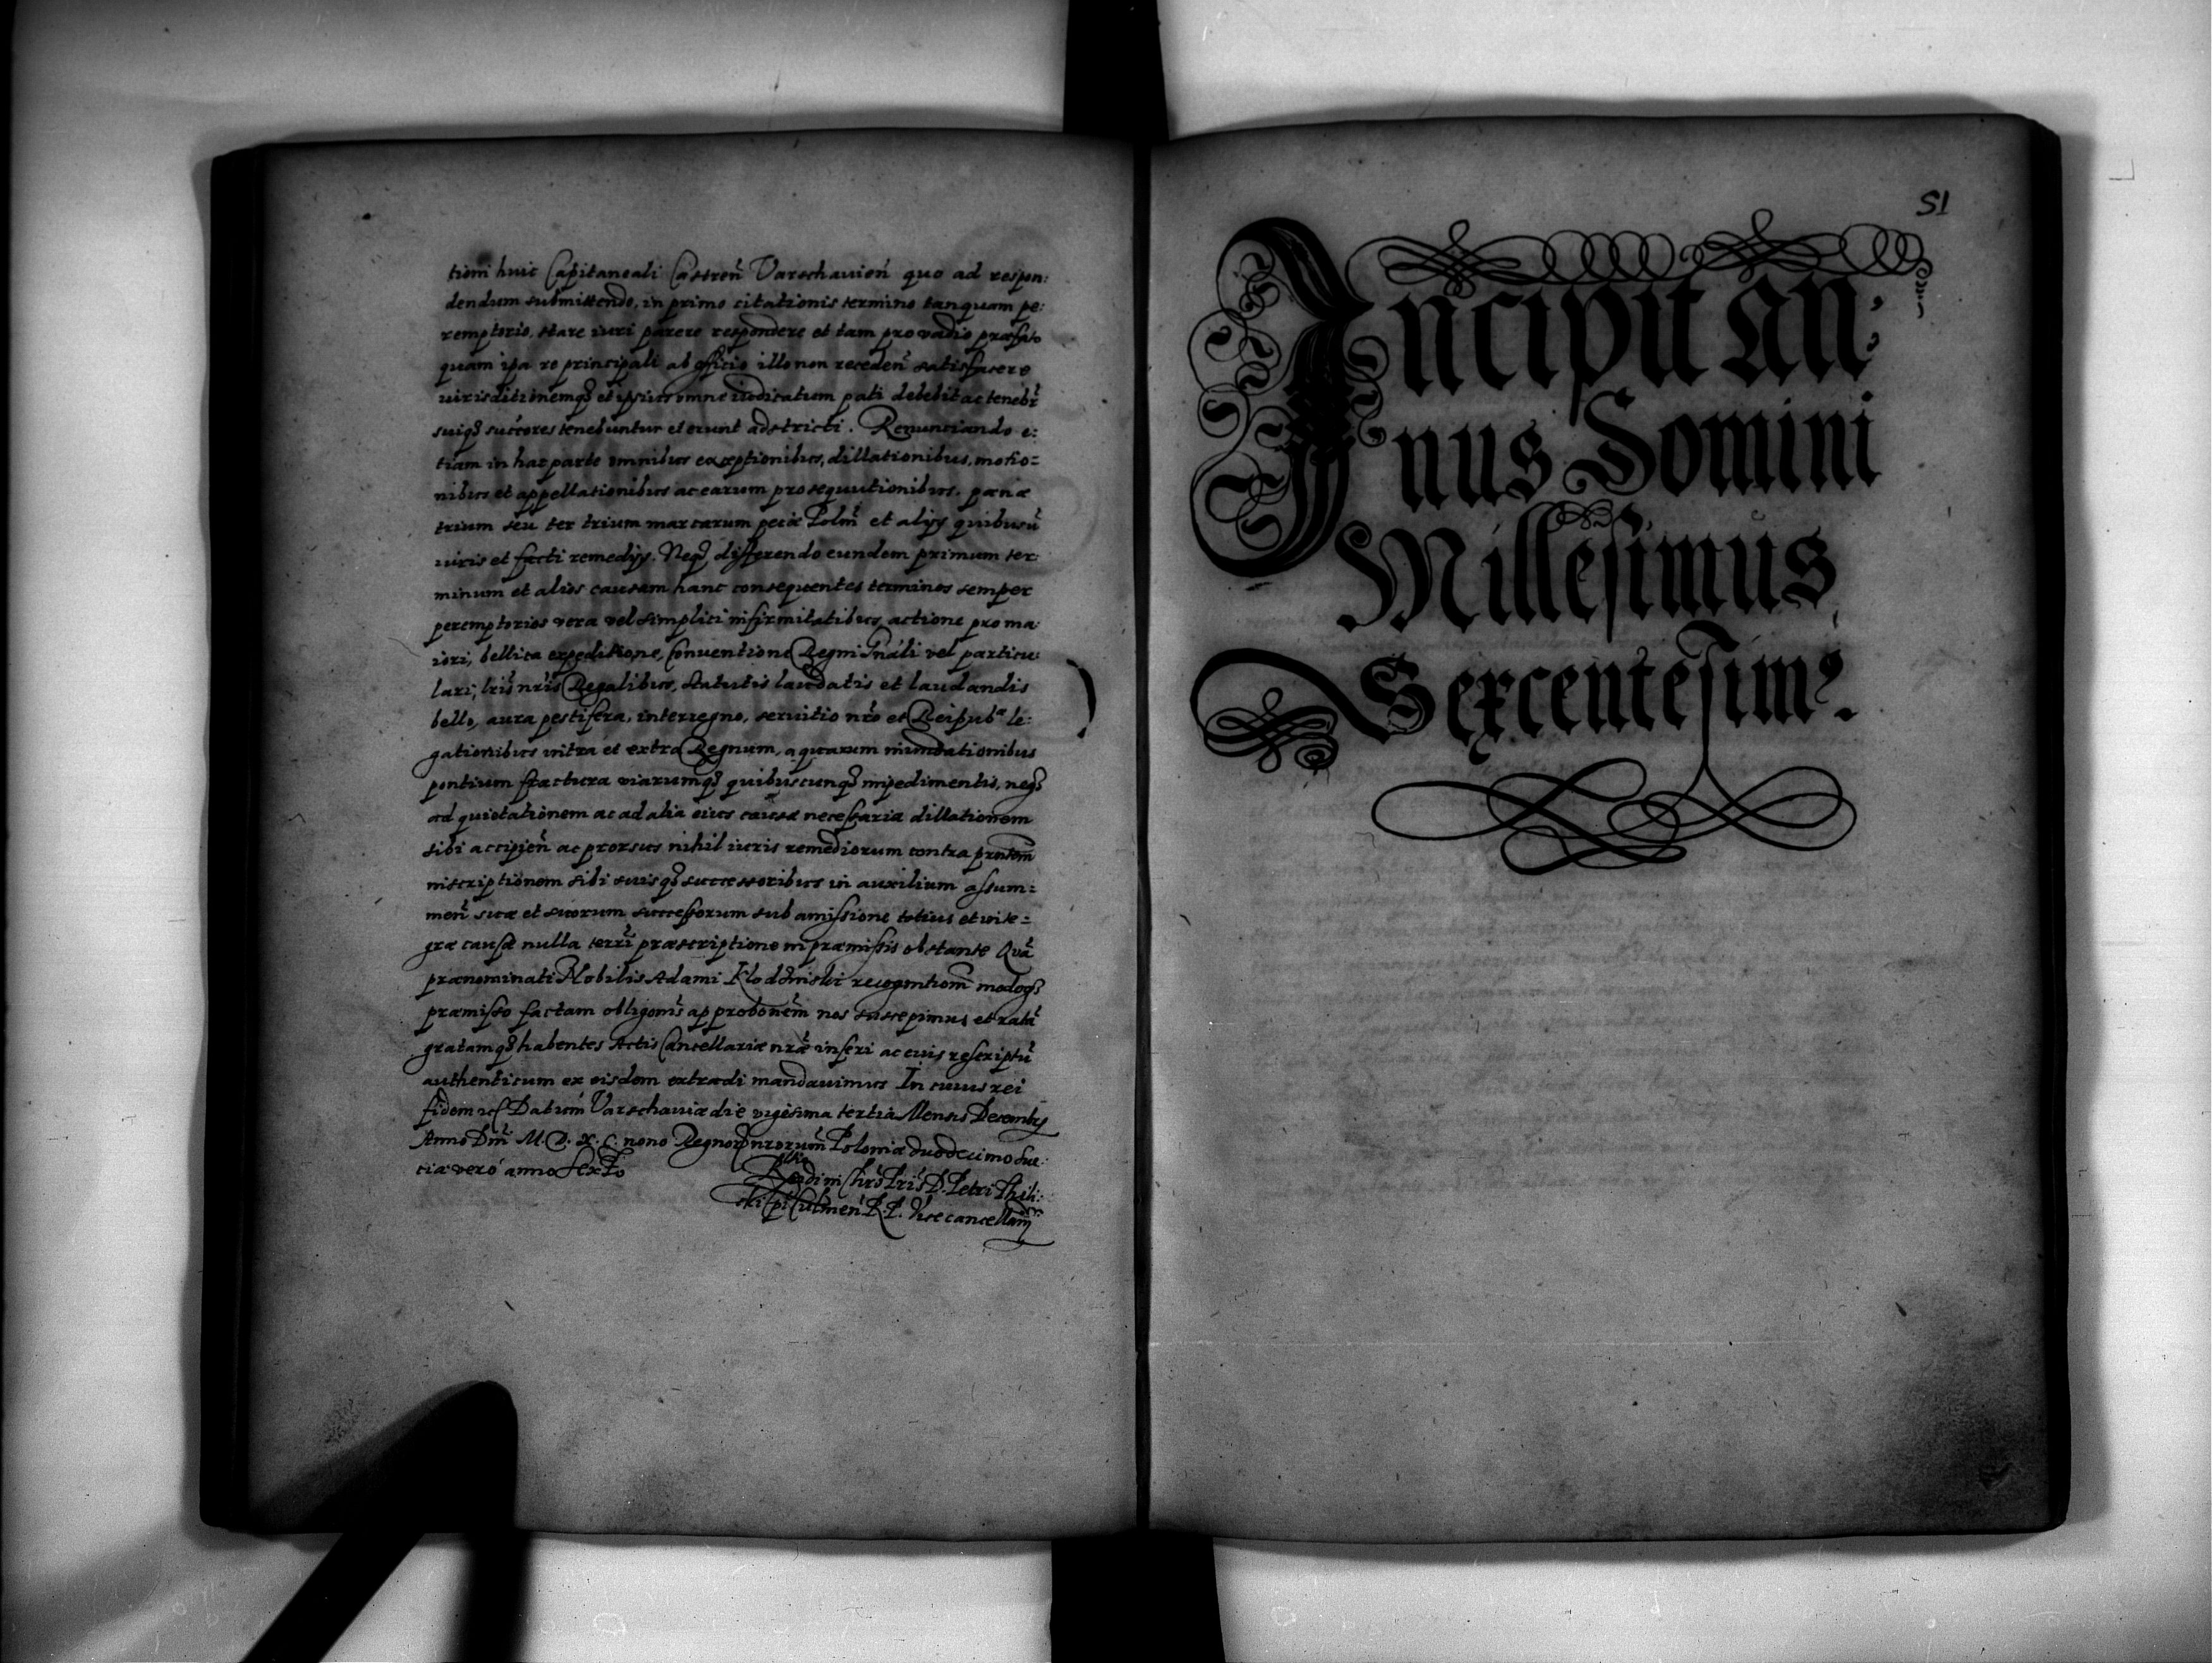 tioni huic Capitaneali Castren̄ Varschauien̄ quo ad respon:
dendum submittendo, in primo citationis termino tanquam pe:
remptorio, stare iuri parere respondere et tam pro vadio præfato
quam ipa re principali ab officio illo non receden̄ satisfacere
iurisditionemq3 et ipsius omne iudicatum pati debebit ac tenebr̄
suiq3 succores tenebuntur et erunt adstricti. Renunciando e:
tiam in hac parte omnibus exceptionibus, dillationibus, motio=
nibus et appellationibus ac earum prosequutionibus, pænæ
trium seu ter trium marcarum peciæ Polm̄ et alijs quibusū
iuris et facti remedijs. Neq3 differendo eundem primum ter:
minum et alios causam hanc consequentes terminos semper
peremptorios vera vel simplici infirmitatibus, actione pro ma:
iori, bellica expeditione, Conuentione Regni Gnāli vel particu:
lari, lris̄ nris̄ Regalibus, statutis laudatis et laudandis
bello, aura pestifera, interregno, seruitio nr̄o et Reipubᶜᵃ le:
gationibus intra et extra Regnum, aquarum inundationibus
pontium fractura viarumq3 quibuscunq3 impedimentis, neq3
ad quietationem ac ad alia eius causæ necessaria dillationem
sibi accipien̄ ac prorsus nihil iuris remediorum contra prntem̄
inscriptionem sibi suisq3 successoribus in auxilium assum=
men̄ suæ et suorum successorum sub amissione totius et inte=
græ causæ nulla terr̄i præscriptione in præmissis obstante Quā
prænominati Nobilis Adami recogntiom̄ modoq3
præmisso factam obligonis̄ approbonem̄ nos suscepimus et ratā
gratamq3 habentes Actis Cancellariæ nrǣ inseri ac eius rescriptū
authenticum ex eisdem extradi mandauimus In cuius rei
fidem Datum Varschauiæ die vigesima tertia Mensis Decembrs
Anno Dm̄ M.D.X.C. nono Regnor nrorum̄ Poloniæ duodecimo Sue:
ciæ vero anno sexto
Rndi in Chrō Pris̄ D. Petri Thili:
cki Epi Culmen̄ R.P. Vicecancellarij
51
Incipit An:
nus Domini
Millesimus
Sexcentesimꝰ.